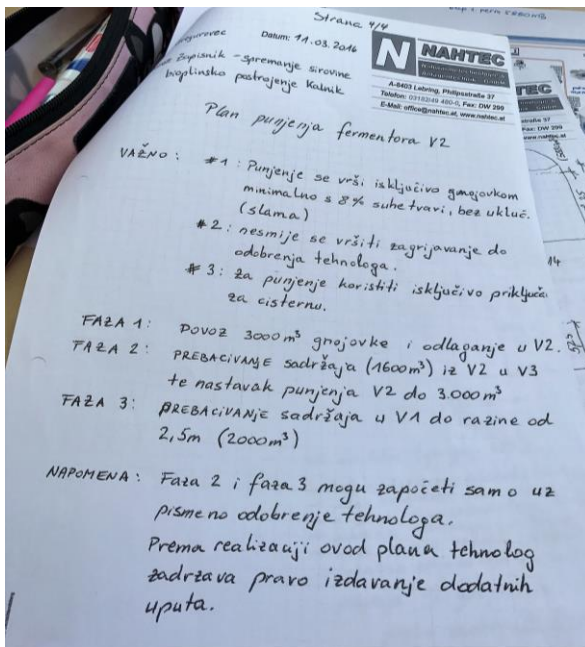 Strana 4/4
Datum: 11.03.2016
NAHTEC
A-8403 Lebring, Philipsstraße 37
Telefon: 03182/49 490-0, Fax: DW 299
E-Mail: office@nahtec.at, www.nahtec.at
Zapisnik - spremanje sirovine
bioplinsko postrojenje Kalnik
Plan punjenja fermentora V2
VAŽNO: #1: Punjenje se vrši isključivo gnojovkom
minimalno s 8% suhe tvari, bez uključ.
(slama)
#2: nesmije se vršiti zagrijavanje do
odobrenja tehnologa.
#3: za punjenje koristiti isključivo priključak
za cisternu.
FAZA 1: DOVOZ 3000m³ gnojovke i odlaganje u V2.
FAZA 2: PREBACIVANJE sadržaja (1600m³) iz V2 u V3
te nastavak punjenja V2 do 3.000m³
FAZA 3: PREBACIVANJE sadržaja u V1 do razine od
2,5m (2000m³)
NAPOMENA: Faza 2 i faza 3 mogu započeti samo uz
pismeno odobrenje tehnologa.
Prema realizaciji ovod plana tehnolog
zadržava pravo izdavanje dodatnih
uputa.
TEC
Fax: DW 299
14